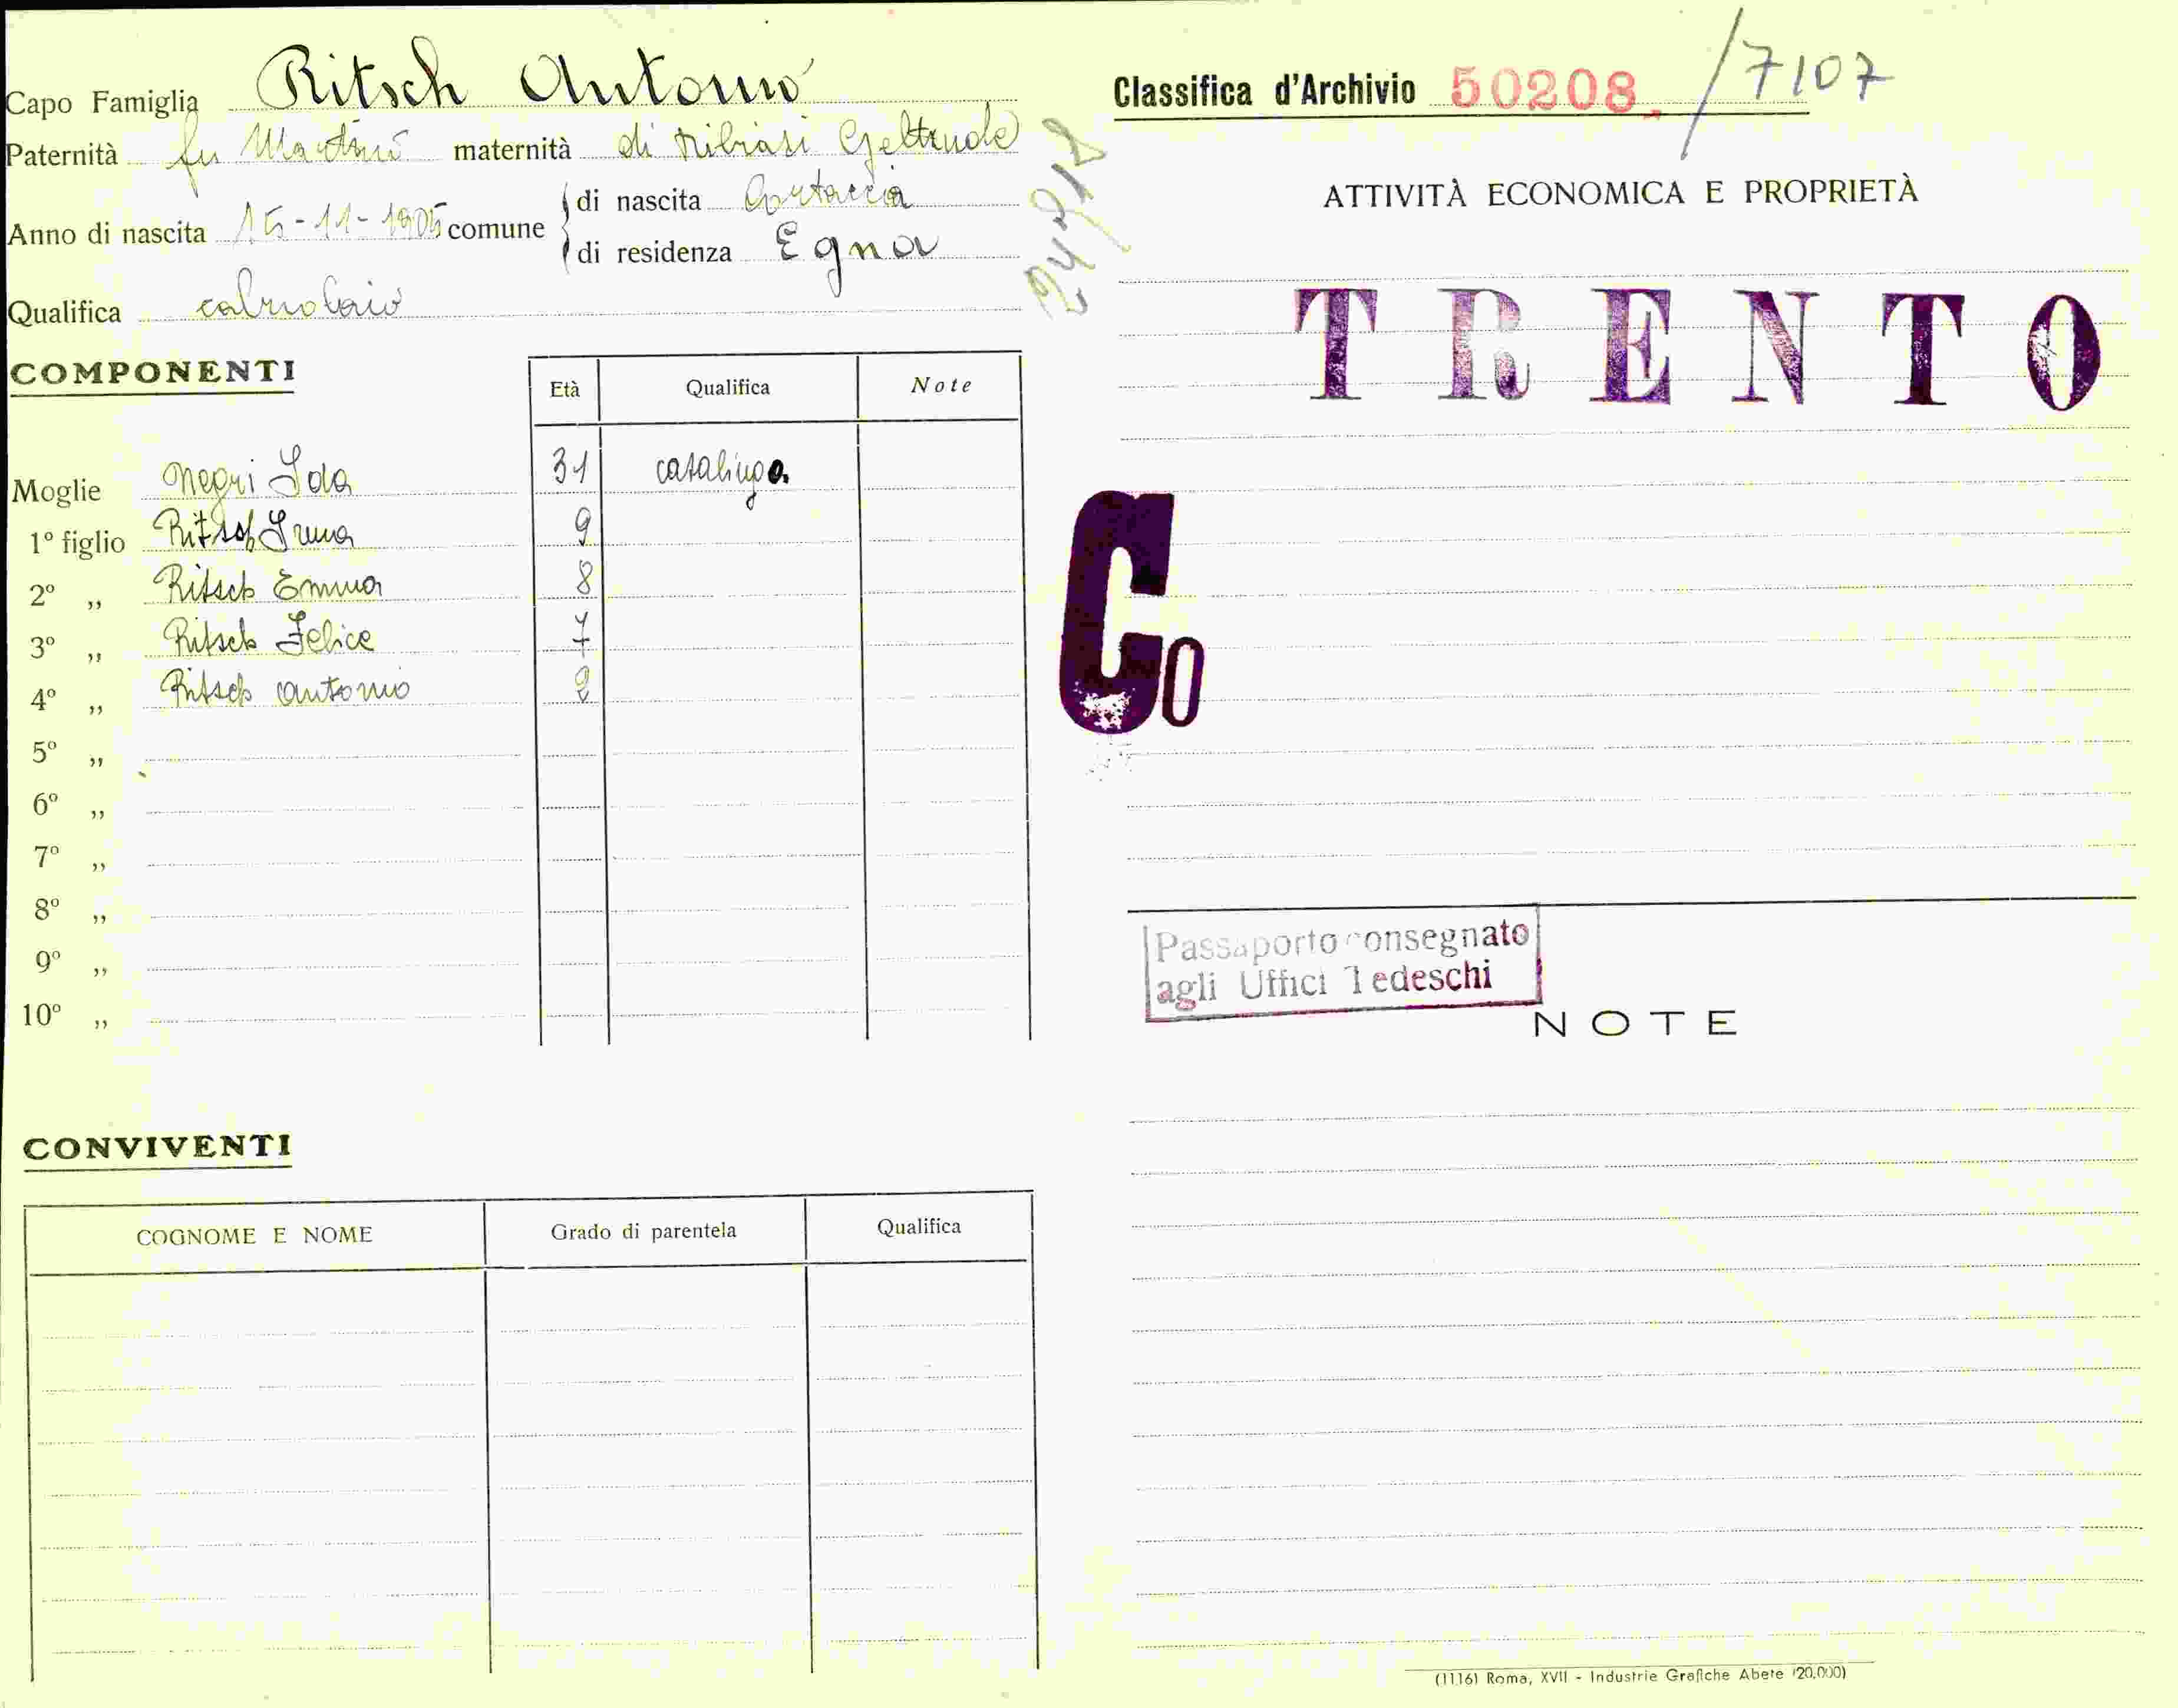 Capo Famiglia Ritsch Antonio
Paternità fu Martino maternità di Nibiasi Geltrude
Anno di nascita 15-11-1905 comune
di nascita Cortaccia
di residenza Egna
Qualifica calzolaio
COMPONENTI
Età Qualifica Note
Moglie Negri Ida 31 casalinga
1º figlio Ritsch Irma 9
2º „ Ritsch Emma 8
3º „ Ritsch Felice 7
4º „ Ritsch Antonio 2
5º „
6º „
7º „
8º „
9º „
10º „
CONVIVENTI
COGNOME E NOME Grado di parentela Qualifica
Classifica d'Archivio 50208. /7107
ATTIVITÀ ECONOMICA E PROPRIETÀ
TRENTO
Co
Passaporto consegnato
agli Uffici Tedeschi
NOTE
(1116) Roma, XVII - Industrie Grafiche Abete (20.000)